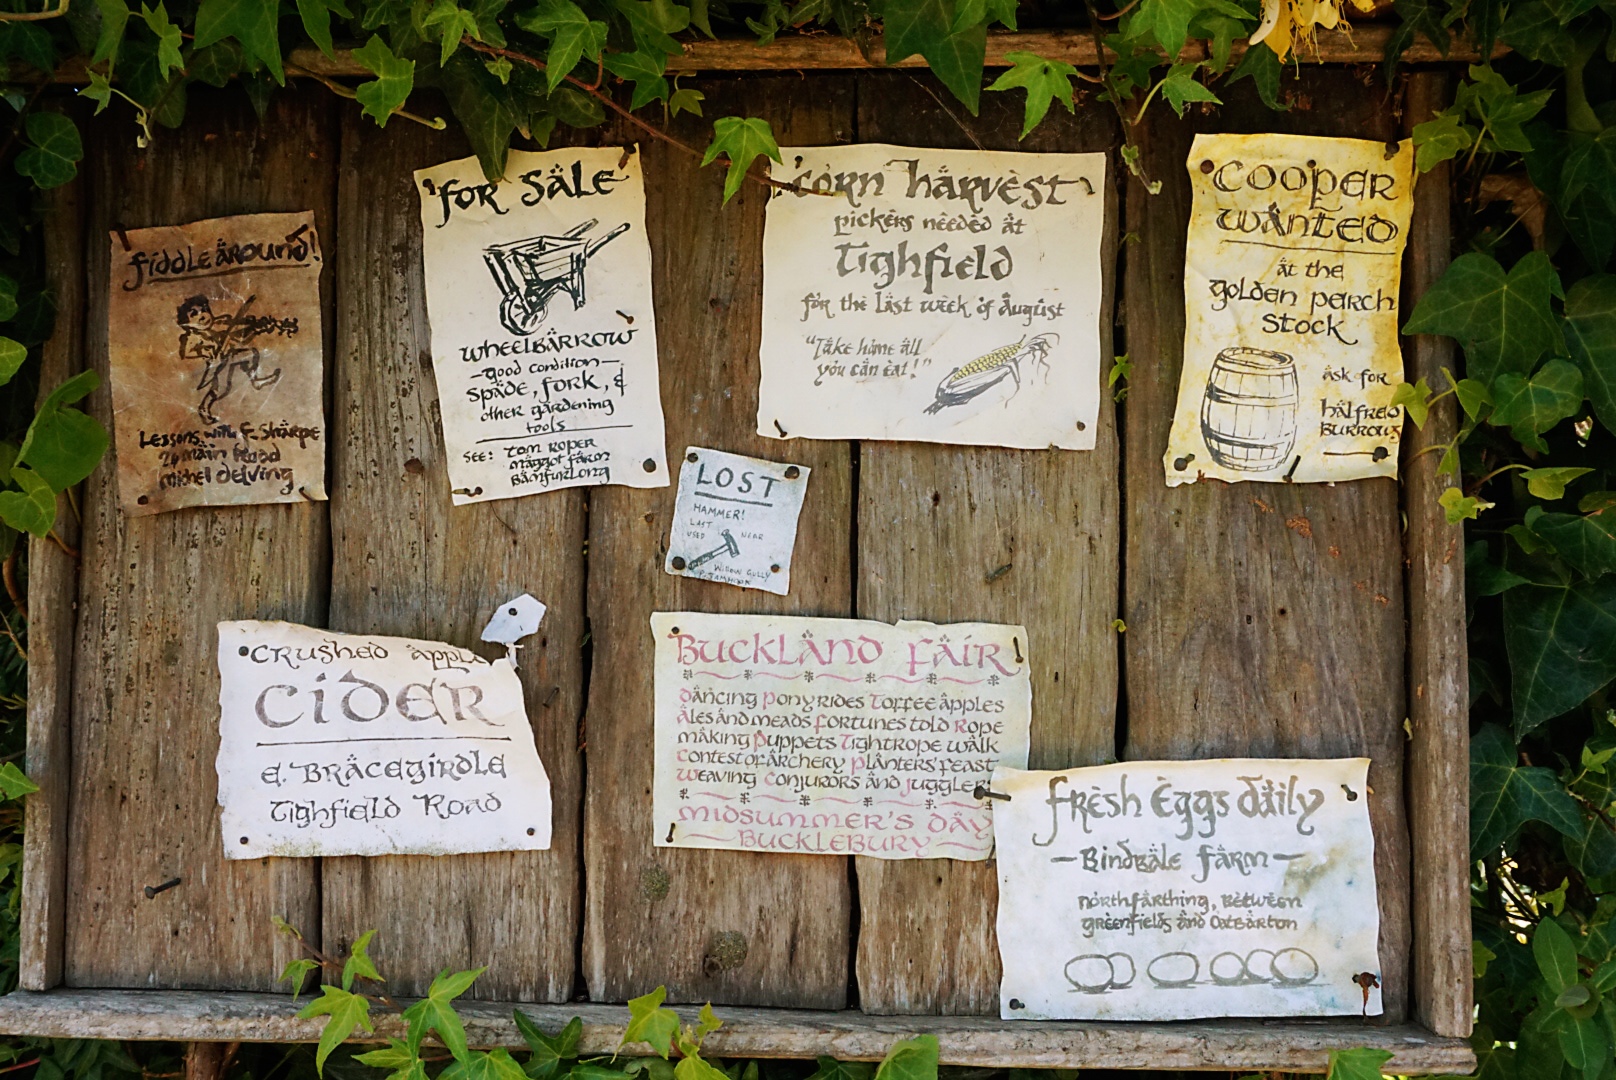 fiddle around!
Lessons with F. Sharpe
24 Main Road
Michel Delving
for sale
wheelbarrow
—good condition—
spade, fork, &
other gardening
tools
see: Tom Roper
Maggot Farm
Bamfurlong
corn harvest
pickers needed at
Tighfield
for the last week of August
"Take home all
you can eat!"
Cooper
wanted
at the
Golden Perch
Stock
ask for
Halfred
Burrows
LOST
HAMMER!
LAST
USED NEAR
Willow Gully
Crushed apple
CIDER
E. Bracegirdle
Tighfield Road
Buckland Fair
Dancing Pony rides Toffee apples
Ales and meads Fortunes told Rope
making Puppets Tightrope walk
Contest of archery Planters feast
Weaving Conjurors and Jugglers
Midsummer's Day
—Bucklebury—
fresh eggs daily
—Bindbale Farm—
Northfarthing, between
Greenfields and Oatbarton